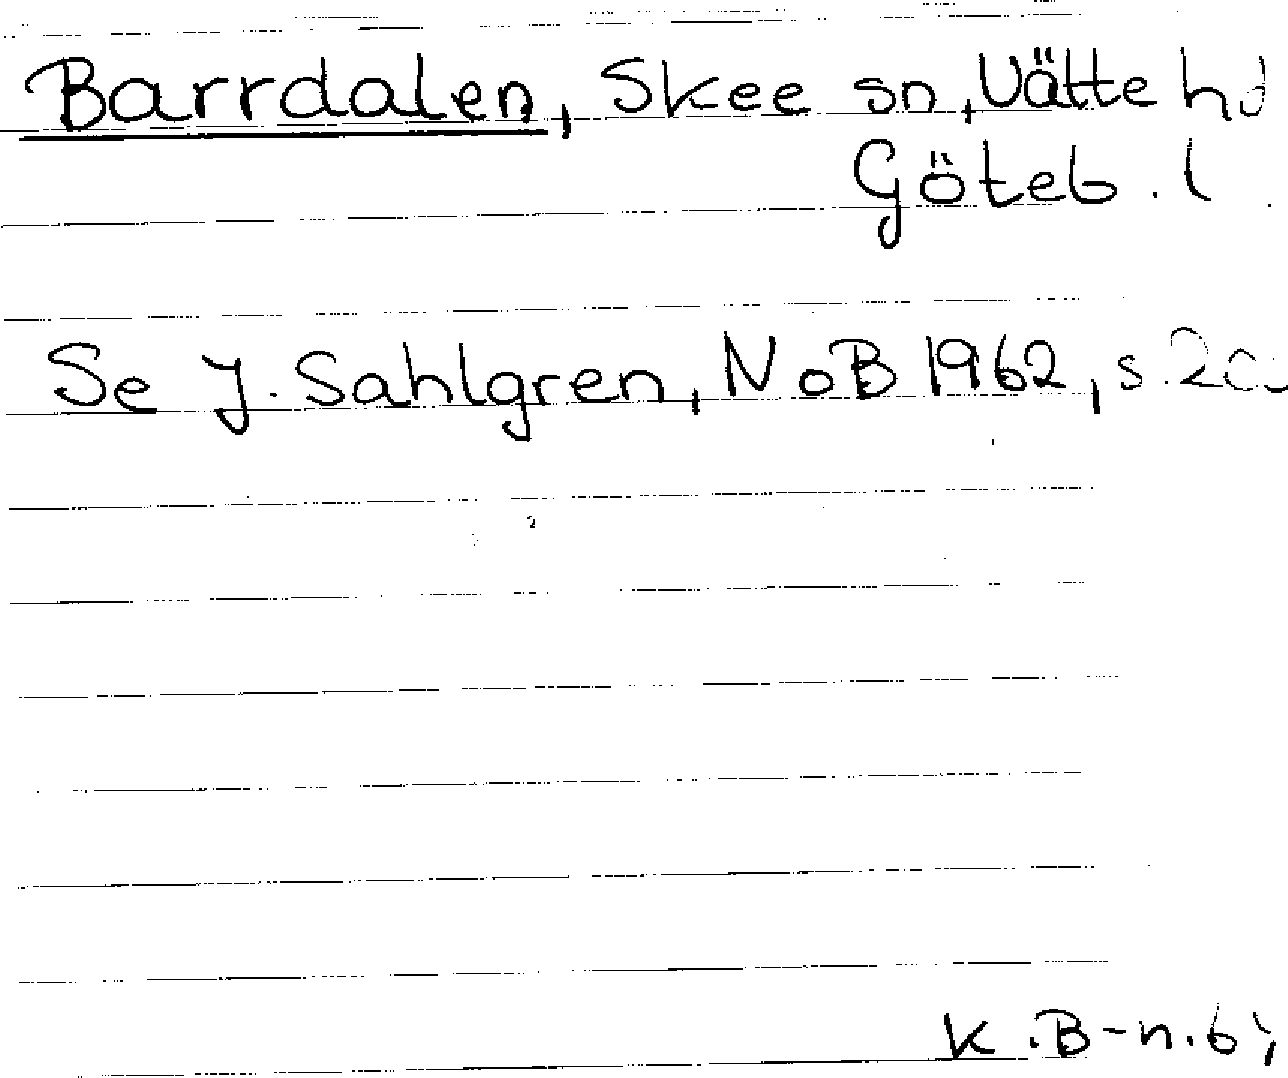 Barrdalen, Skee sn, Vätte hd
Göteb. l.
Se J. Sahlgren, NoB 1962, s.
K. B-n.